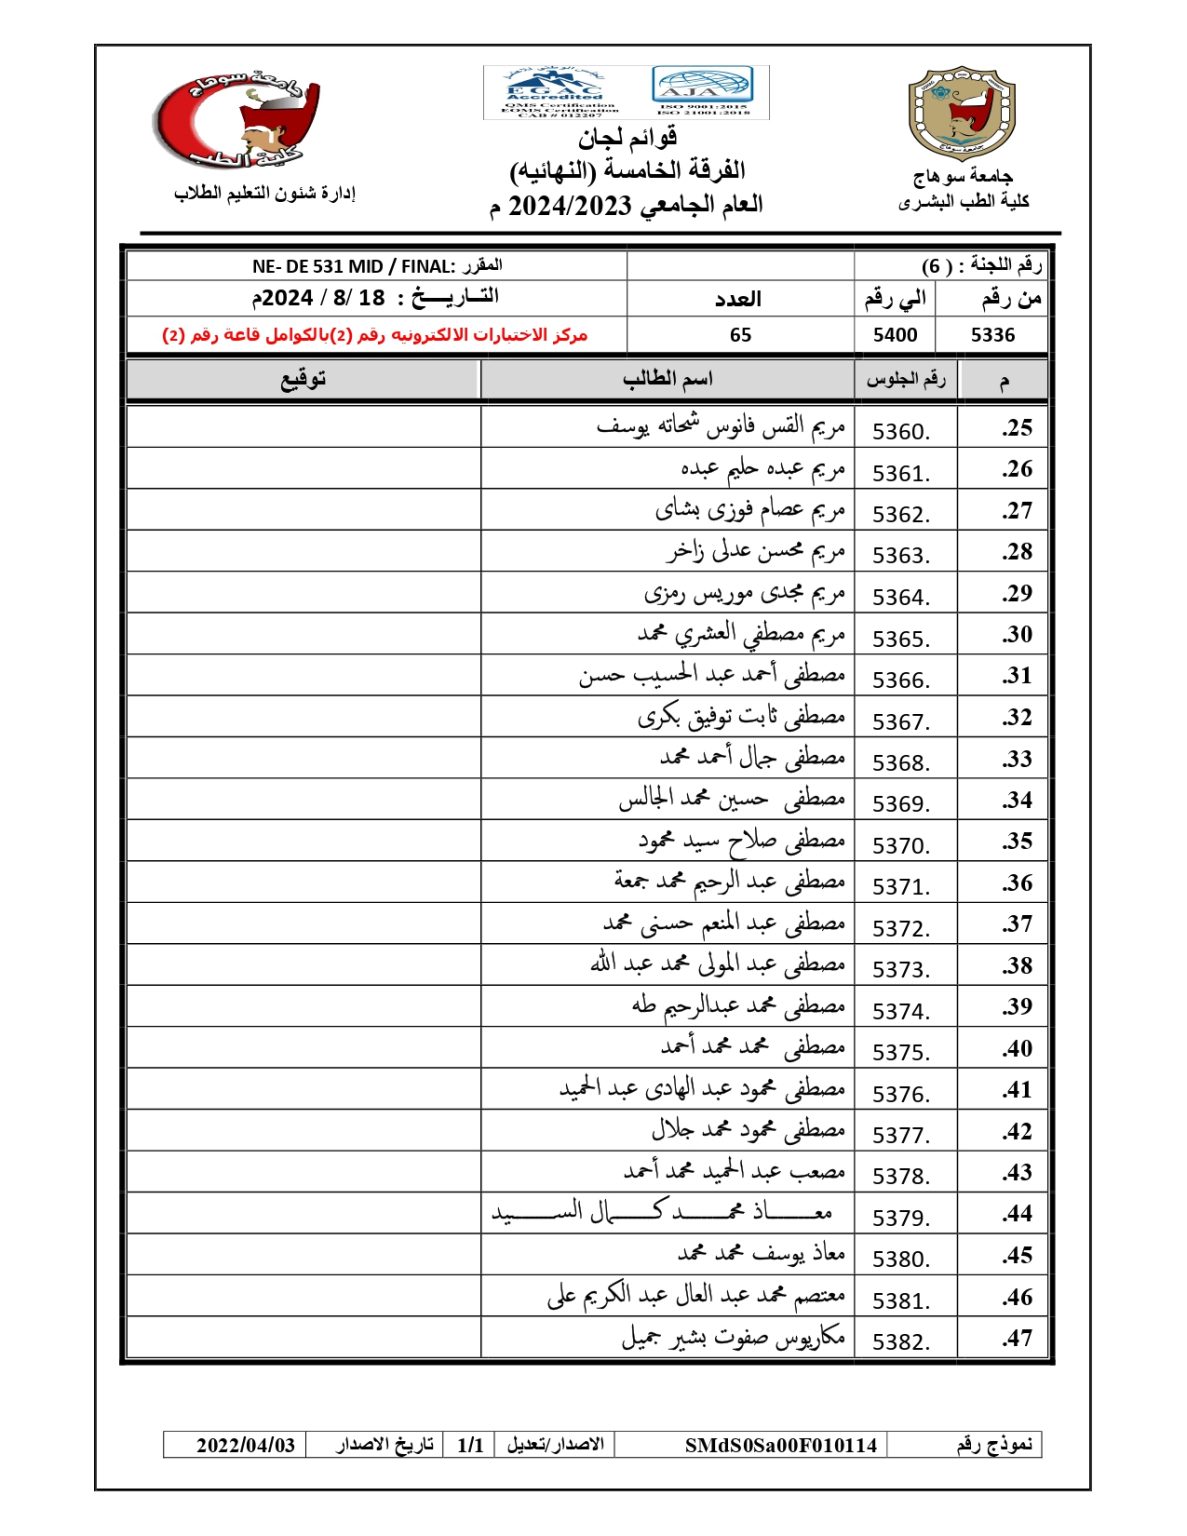 جامعة سوهاج
كلية الطب
إدارة شئون التعليم الطلاب
EGAC
Accredited
QMS Certification
EOMS Certification
CAB # 012207
AJA
ISO 9001:2015
ISO 21001:2018
قوائم لجان
الفرقة الخامسة (النهائيه)
العام الجامعي 2024/2023 م
جامعة سوهاج
جامعة سوهاج
كلية الطب البشرى
رقم اللجنة : ( 6) المقرر :NE- DE 531 MID / FINAL
من رقم الي رقم العدد التــاريـــخ : 18 /8 / 2024م
5336 5400 65 مركز الاختبارات الالكترونيه رقم (2)بالكوامل قاعة رقم (2)
م رقم الجلوس اسم الطالب توقيع
25. 5360. مريم القس فانوس شحاته يوسف
26. 5361. مريم عبده حليم عبده
27. 5362. مريم عصام فوزى بشاى
28. 5363. مريم محسن عدلى زاخر
29. 5364. مريم مجدى موريس رمزى
30. 5365. مريم مصطفي العشري محمد
31. 5366. مصطفى أحمد عبد الحسيب حسن
32. 5367. مصطفى ثابت توفيق بكرى
33. 5368. مصطفى جمال أحمد محمد
34. 5369. مصطفى حسين محمد الجالس
35. 5370. مصطفى صلاح سيد محمود
36. 5371. مصطفى عبد الرحيم محمد جمعة
37. 5372. مصطفى عبد المنعم حسنى محمد
38. 5373. مصطفى عبد المولى محمد عبد الله
39. 5374. مصطفى محمد عبدالرحيم طه
40. 5375. مصطفى محمد محمد أحمد
41. 5376. مصطفى محمود عبد الهادى عبد الحميد
42. 5377. مصطفى محمود محمد جلال
43. 5378. مصعب عبد الحميد محمد أحمد
44. 5379. معـــــاذ محمـــــد كـــــمال الســـــيد
45. 5380. معاذ يوسف محمد محمد
46. 5381. معتصم محمد عبد العال عبد الكريم على
47. 5382. مكاريوس صفوت بشير جميل
نموذج رقم SMdS0Sa00F010114 الاصدار/تعديل 1/1 تاريخ الاصدار 2022/04/03